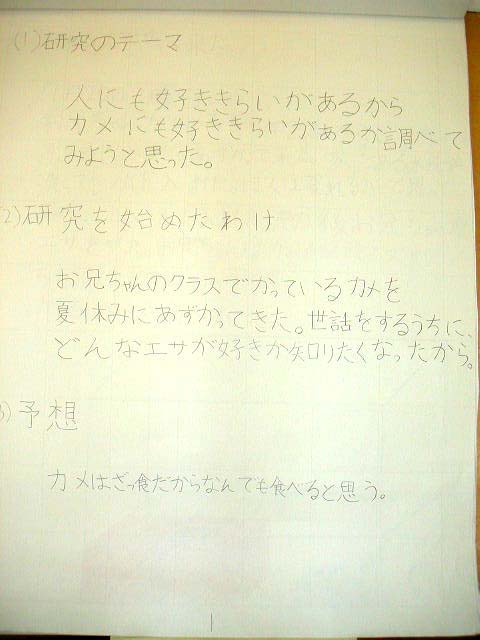 (1)研究のテーマ
人にも好ききらいがあるから
カメにも好ききらいがあるか調べて
みようと思った。
2)研究を始めたわけ
お兄ちゃんのクラスでかっているカメを
夏休みにあずかってきた。世話をするうちに、
どんなエサが好きか知りたくなったから。
3)予想
カメはざっ食だからなんでも食べると思う。
1